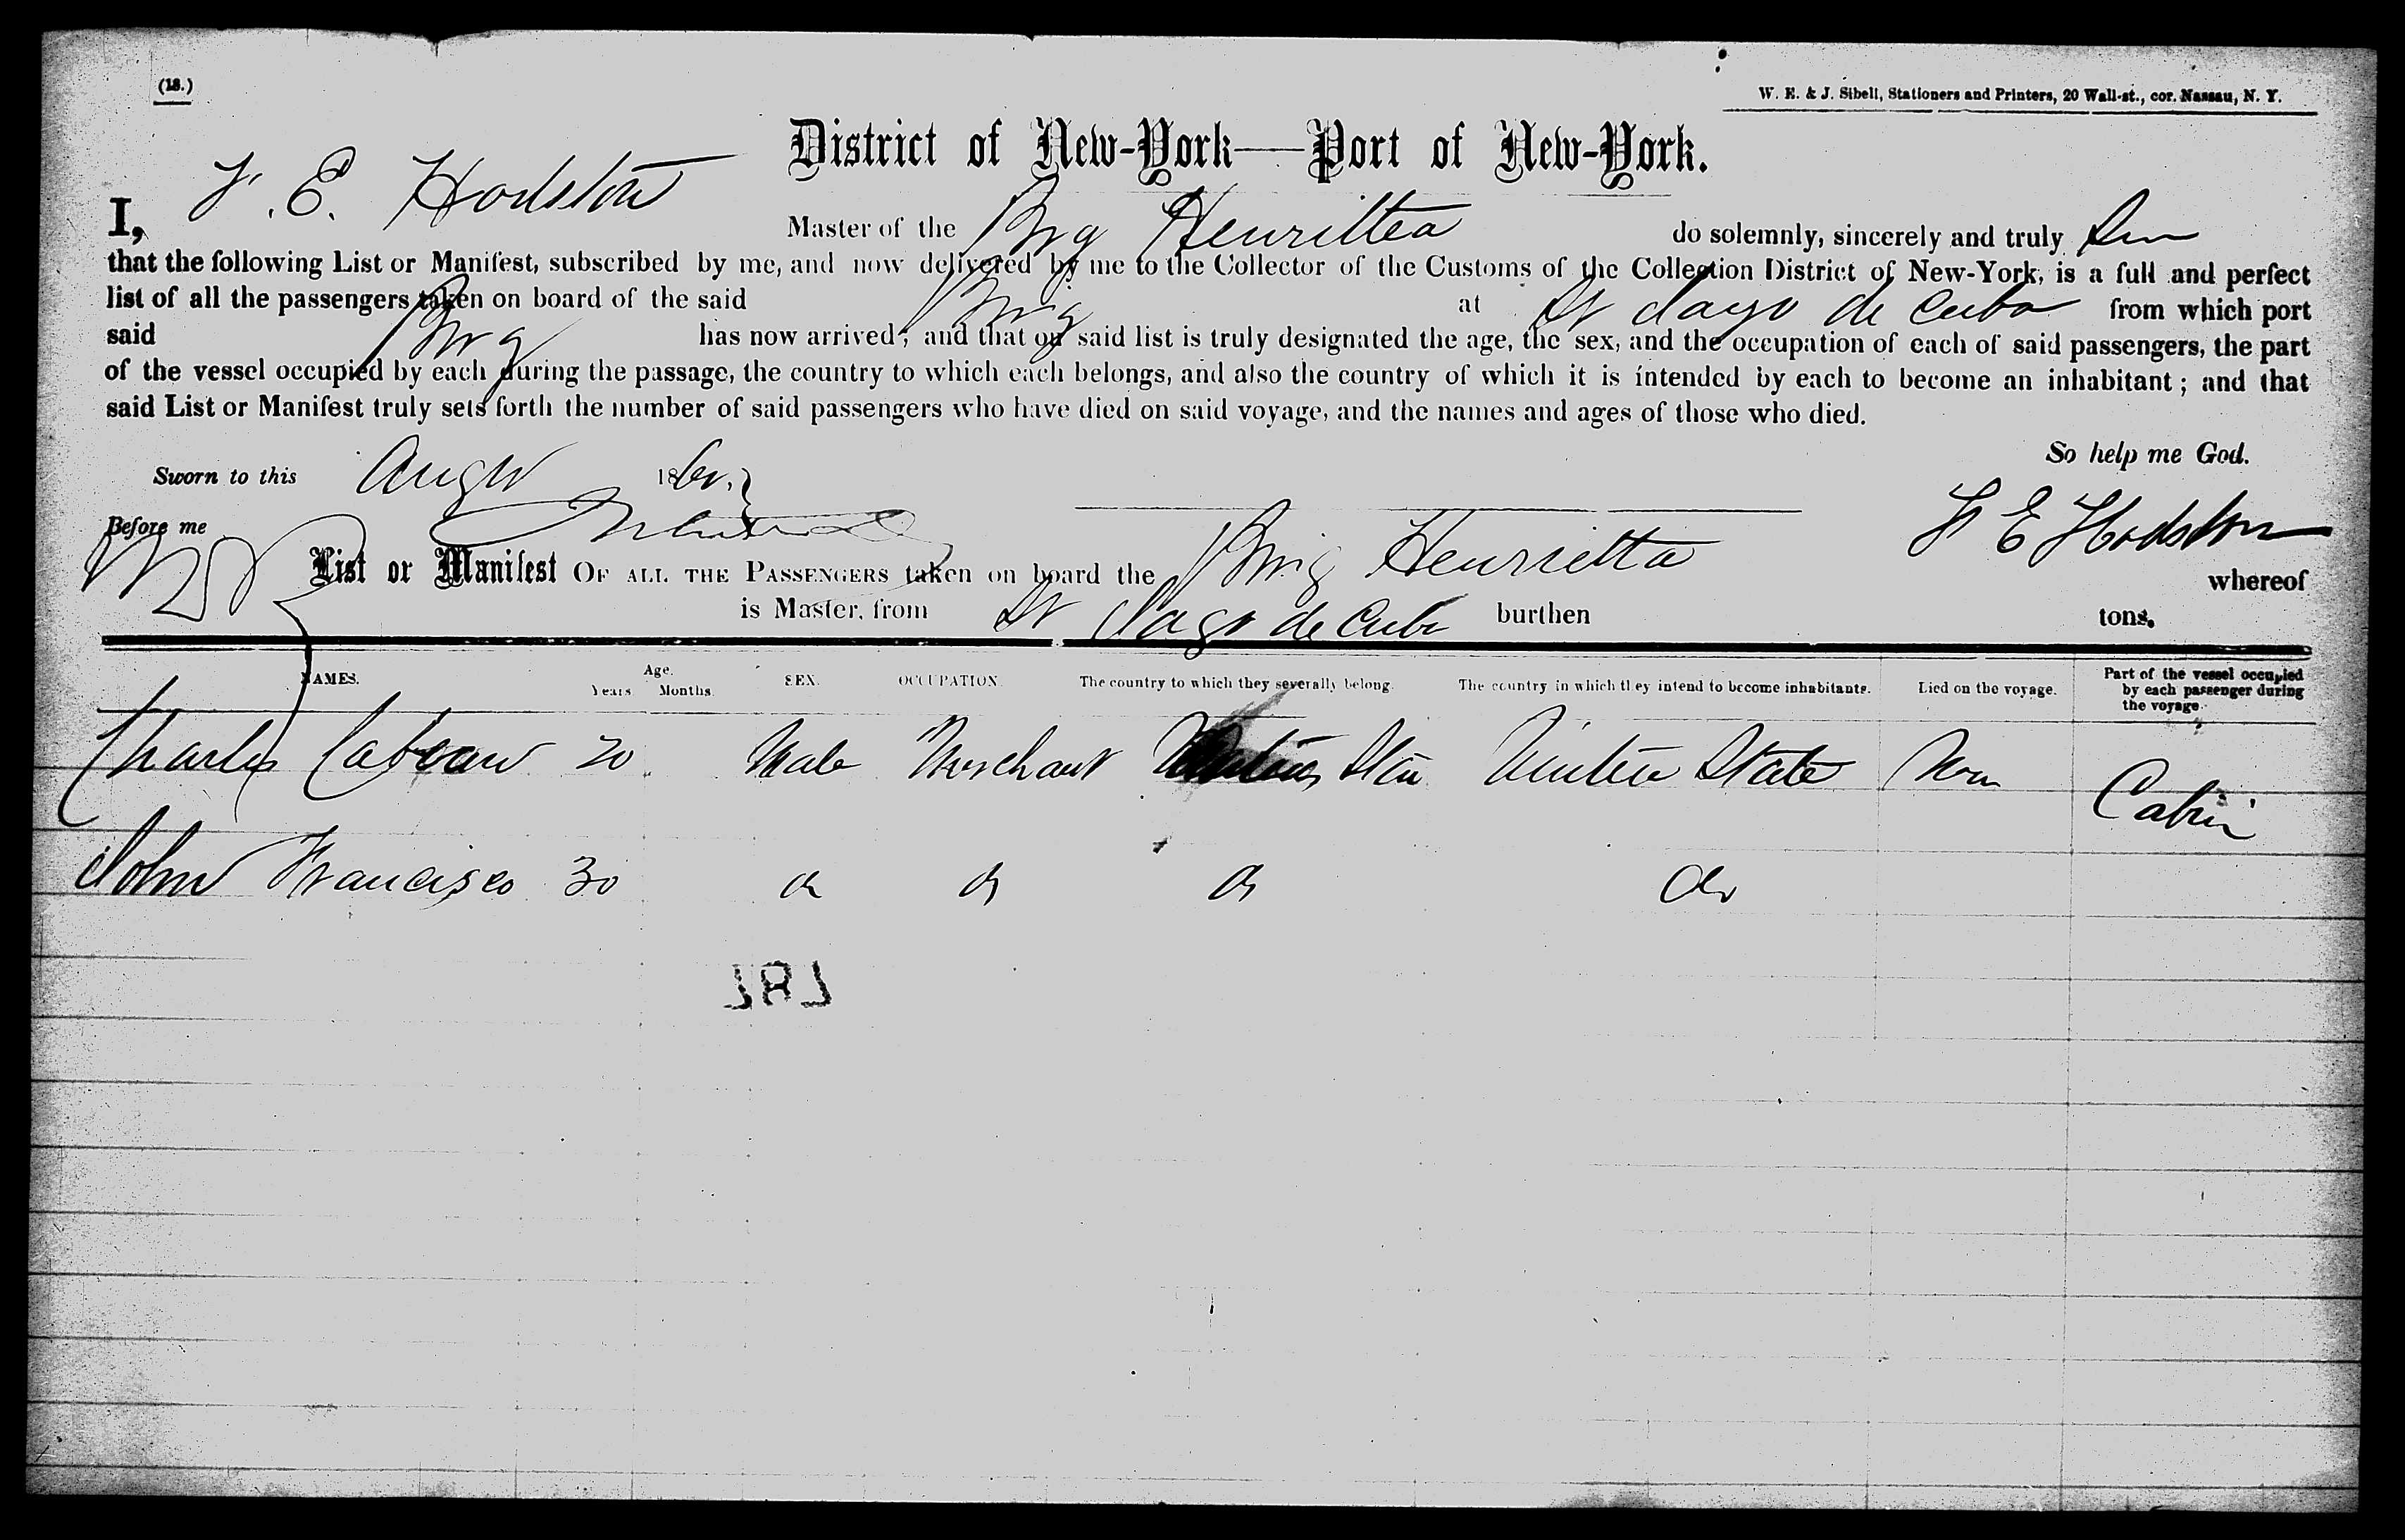 (18.)
W. E. & J. Sibell, Stationers and Printers, 20 Wall-st., cor. Nassau, N. Y.
District of New-York—Port of New-York.
I, E. Hodsdon Master of the Brig Henrietta do solemnly, sincerely and truly
that the following List or Manifest, subscribed by me, and now delivered by me to the Collector of the Customs of the Collection District of New-York, is a full and perfect
list of all the passengers taken on board of the said Brig at St Iago de Cuba from which port
said Brig has now arrived; and that on said list is truly designated the age, the sex, and the occupation of each of said passengers, the part
of the vessel occupied by each during the passage, the country to which each belongs, and also the country of which it is intended by each to become an inhabitant; and that
said List or Manifest truly sets forth the number of said passengers who have died on said voyage, and the names and ages of those who died.
So help me God.
Sworn to this 186
Before me
E Hodsdon
List or Manifest OF ALL THE PASSENGERS taken on board the Brig Henrietta whereof
is Master, from St Iago de Cuba burthen tons.
NAMES. Age. Years. Months. SEX. OCCUPATION. The country to which they severally belong. The country in which they intend to become inhabitants. Died on the voyage. Part of the vessel occupied by each passenger during the voyage.
Charles 20 Male Merchant United State Non Cabin
John Francisco 30 do do do do
787